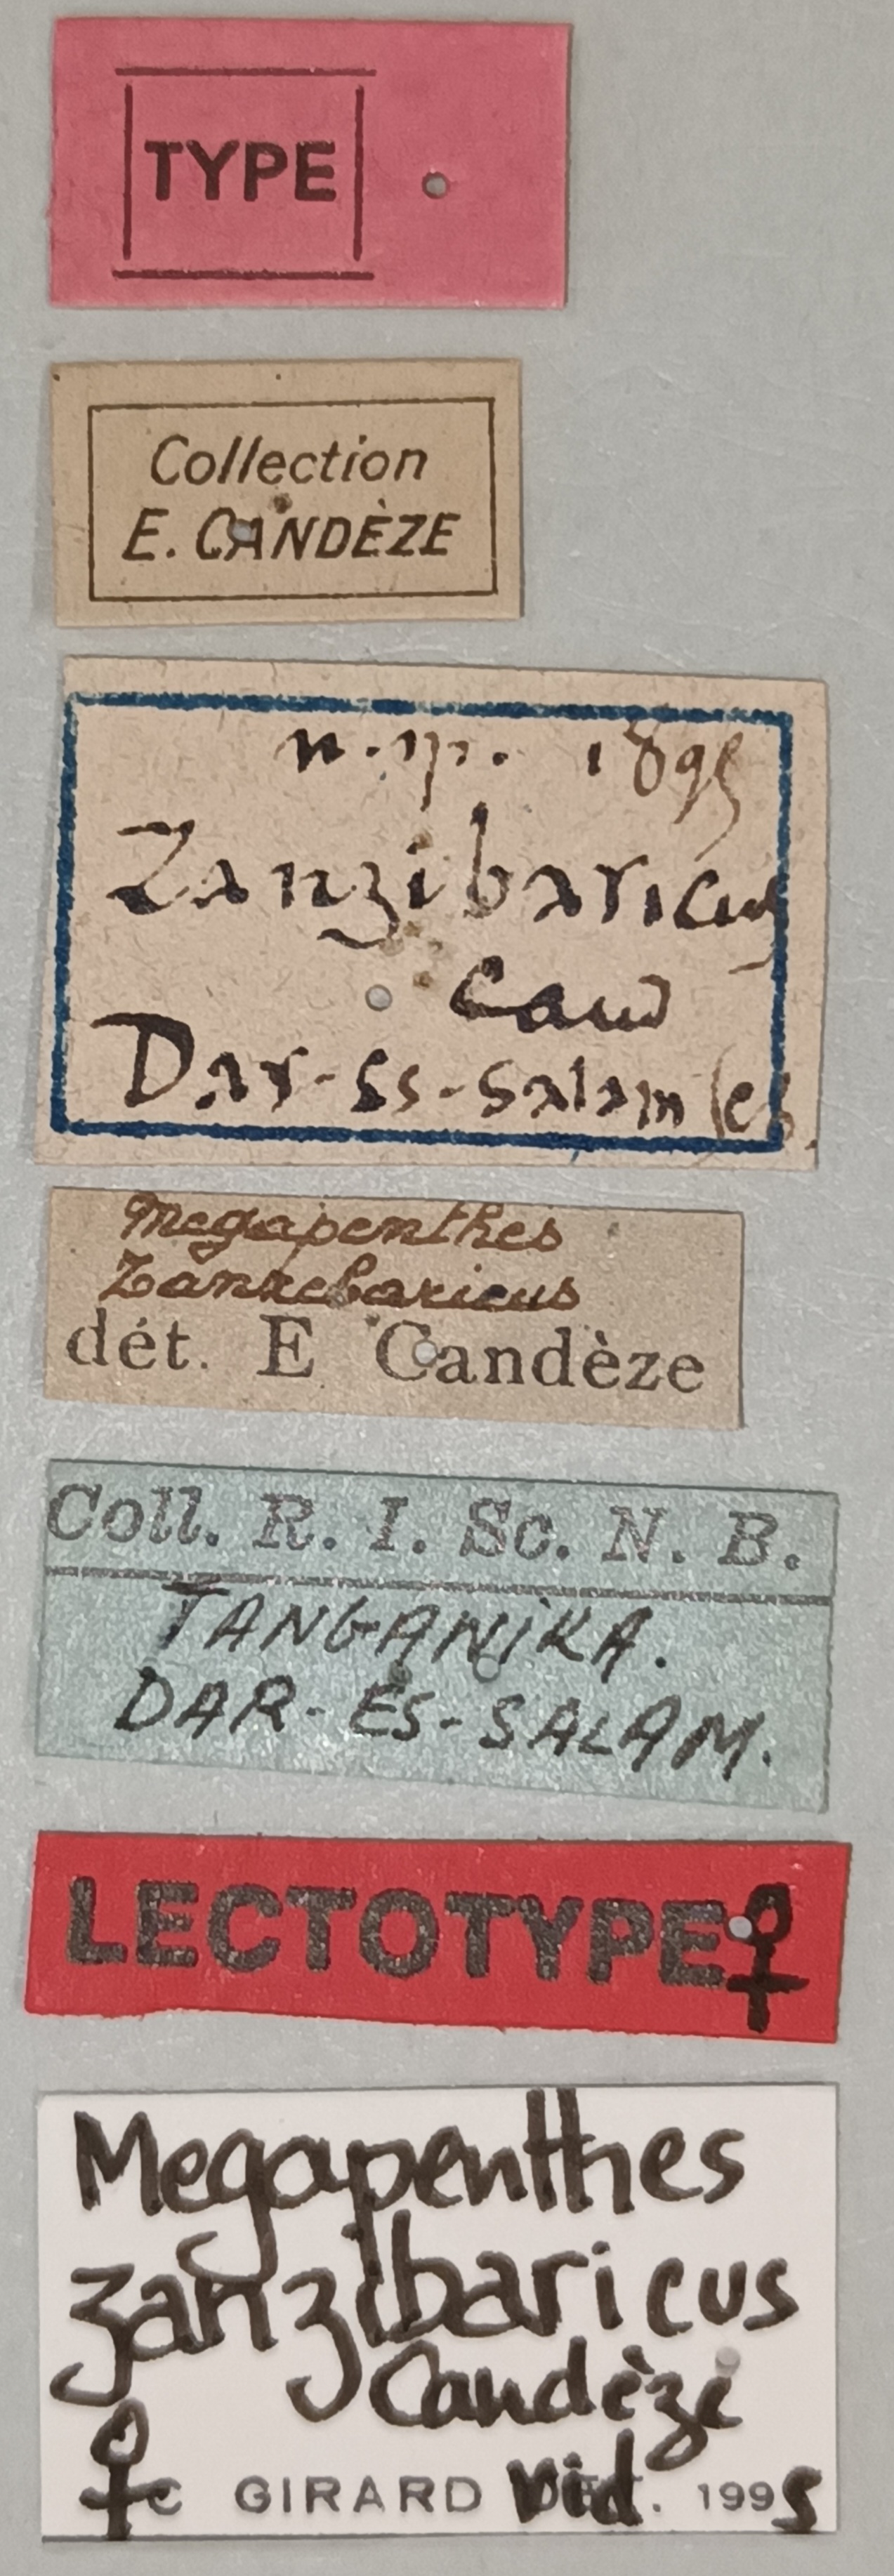 TYPE
Collection
E. CANDÈZE
n. sp. 1895
Zanzibaricus
Cand
Dar-Es-Salam
Megapenthes
dét. E Candèze
Coll. R. I. Sc. N. B.
TANGANiKA.
DAR-ES-SALAM.
LECTOTYPE ♀
Megapenthes
zanzibaricus
Candèze
♀ C GIRARD vid. 1995